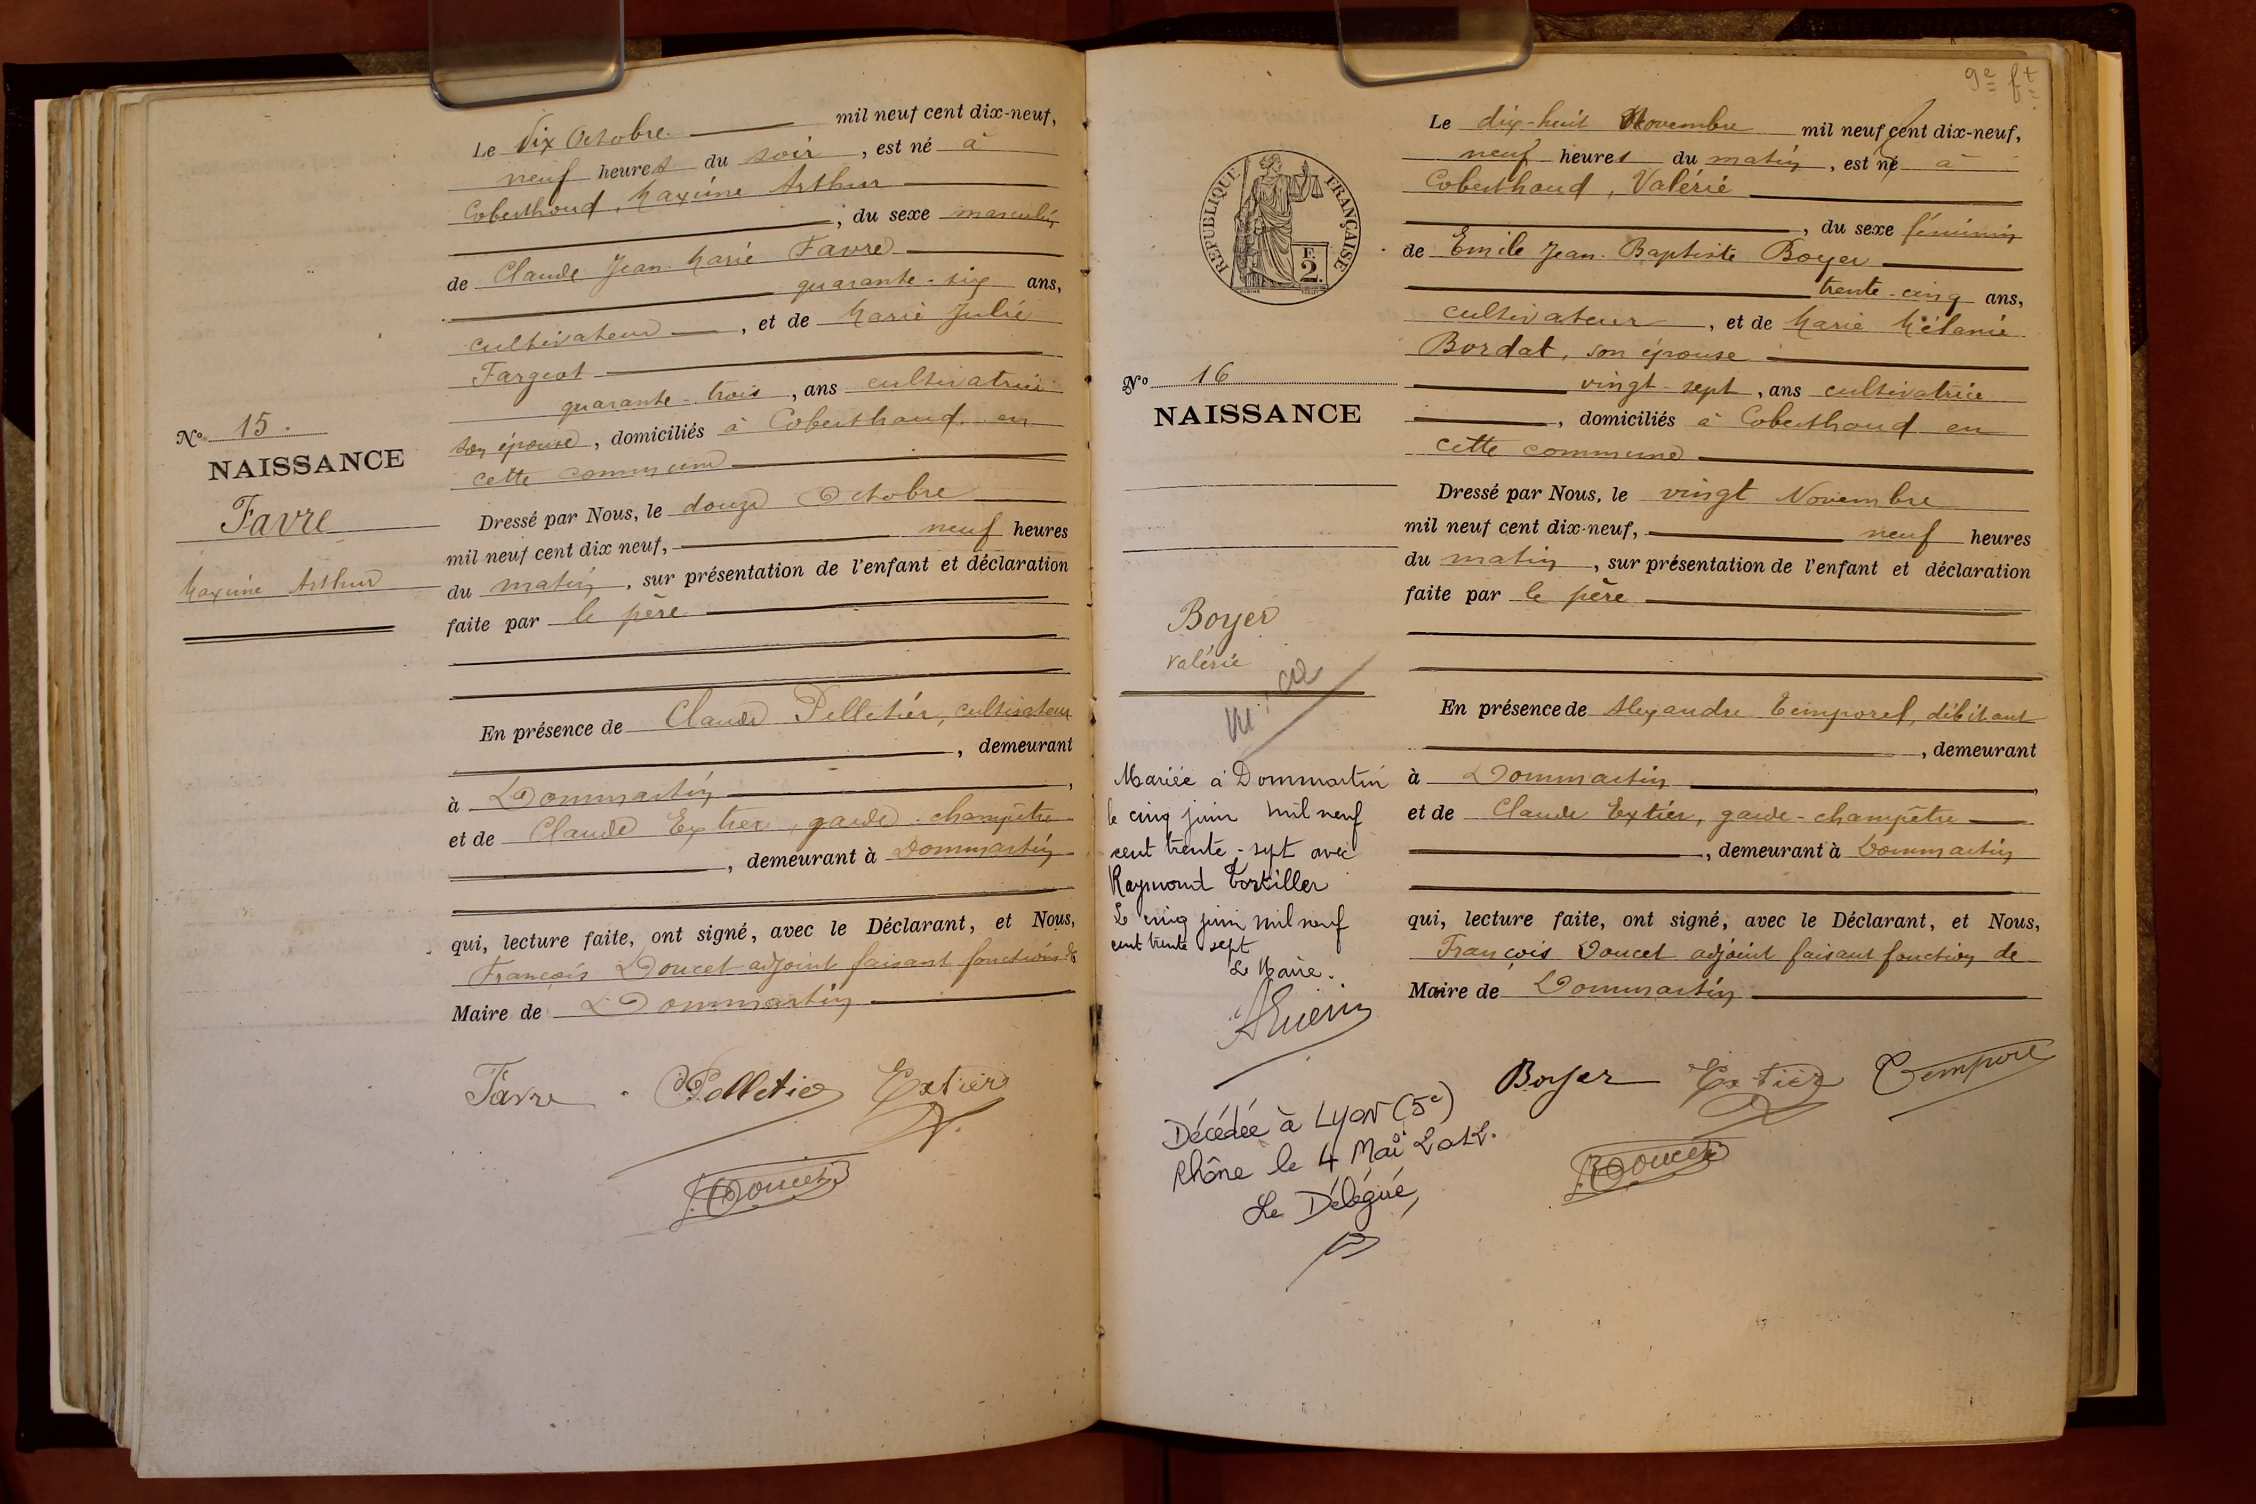 Le dix Octobre mil neuf cent dix-neuf,
neuf heures du soir, est né à
Coberthoud, Maxime Arthur
, du sexe masculin
de Claude Jean Marie Favre
quarante-six ans,
cultivateur, et de Marie Julie
Fargeot
quarante-trois, ans cultivatrice
son épouse, domiciliés à Coberthoud en
cette commune
No 15.
NAISSANCE
Favre
Maxime Arthur
Dressé par Nous, le douze Octobre
mil neuf cent dix neuf, neuf heures
du matin, sur présentation de l'enfant et déclaration
faite par le père
En présence de Claude Pelletier, cultivateur
, demeurant
à Dommartin,
et de Claude Extier, garde-champêtre
, demeurant à Dommartin
qui, lecture faite, ont signé, avec le Déclarant, et Nous,
François Doucet adjoint faisant fonctions de
Maire de Dommartin
Favre Pelletier Extier
F. Doucet
9e ft
Le dix-huit Novembre mil neuf cent dix-neuf,
neuf heures du matin, est né à
Coberthoud, Valérie
, du sexe féminin
de Emile Jean-Baptiste Boyer
trente-cinq ans,
cultivateur, et de Marie Mélanie
Bordat, son épouse
vingt-sept, ans cultivatrice
, domiciliés à Coberthoud en
cette commune
RÉPUBLIQUE FRANÇAISE
E.
2.
No 16
NAISSANCE
Boyer
Valérie
Dressé par Nous, le vingt Novembre
mil neuf cent dix-neuf, neuf heures
du matin, sur présentation de l'enfant et déclaration
faite par le père
En présence de Alexandre Temporel, débitant
, demeurant
à Dommartin,
et de Claude Extier, garde-champêtre
, demeurant à Dommartin
qui, lecture faite, ont signé, avec le Déclarant, et Nous,
François Doucet adjoint faisant fonction de
Maire de Dommartin
Mariée à Dommartin
le cinq juin mil neuf
cent trente-sept avec
Raymond Tortiller
Le cinq juin mil neuf
cent trente sept
Le Maire.
Boyer Extier Temporel
F. Doucet
Décédée à Lyon (5e)
Rhône le 4 Mai 2012.
Le Délégué,